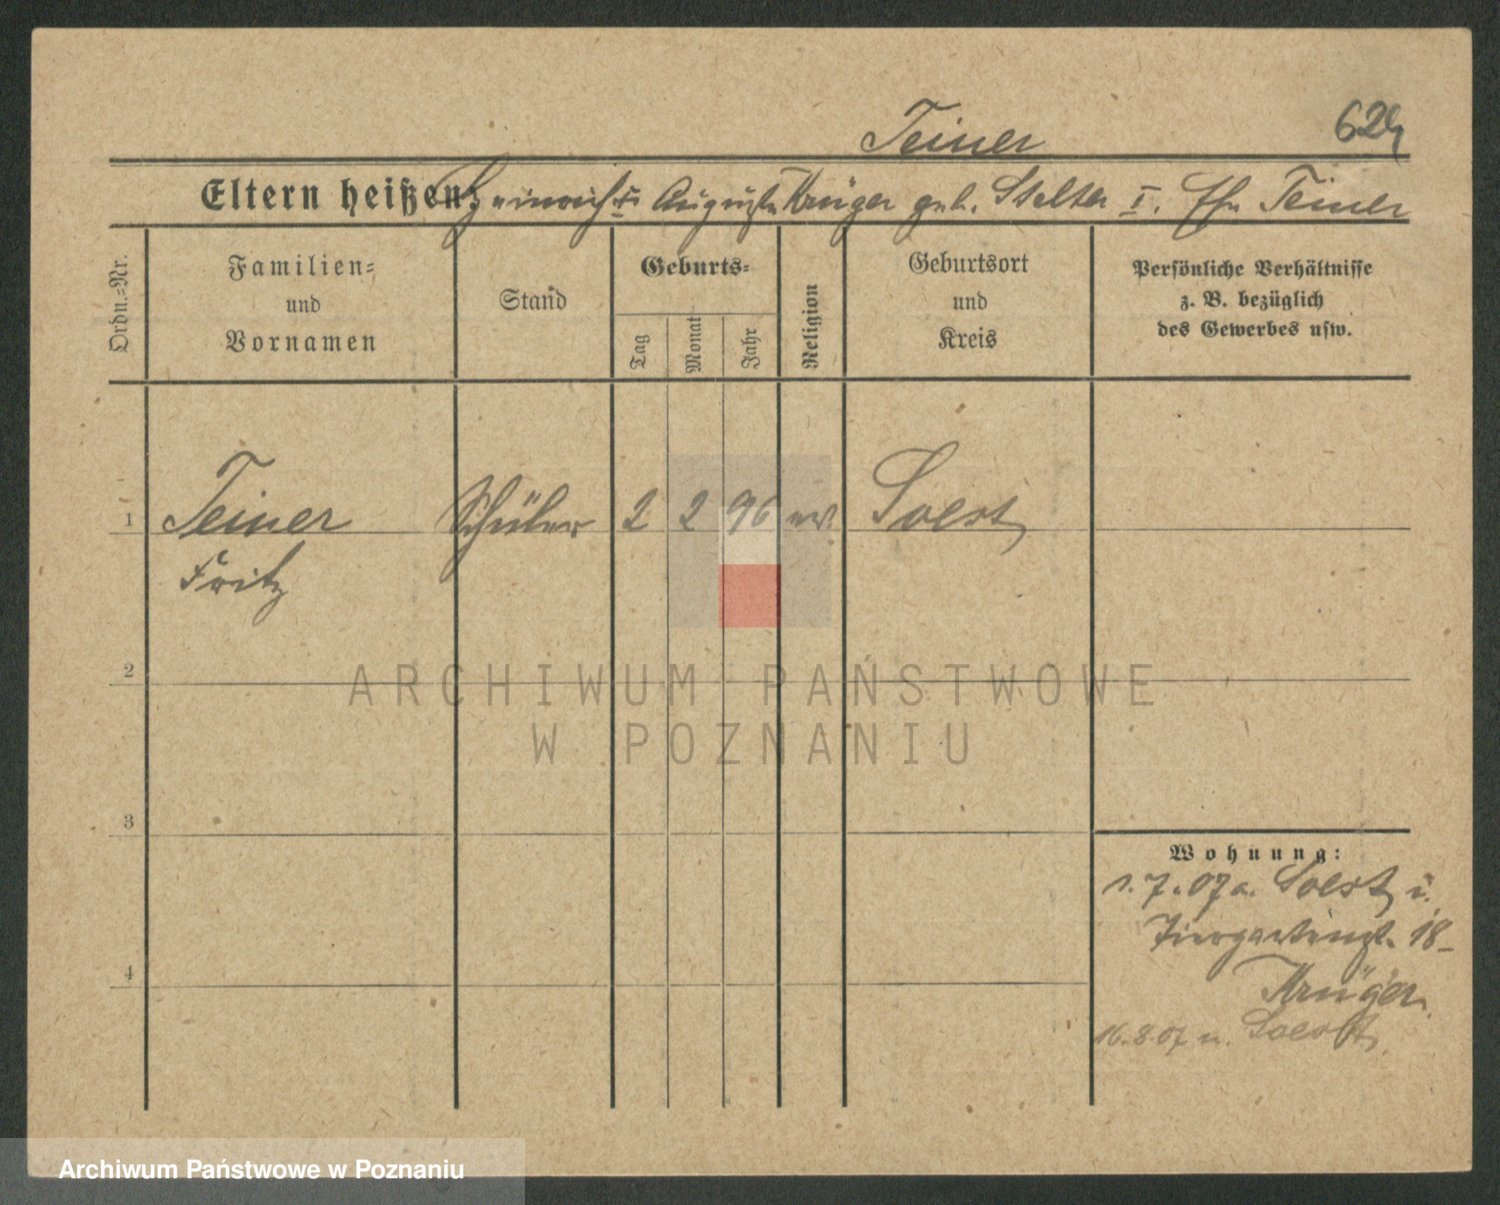 Teiner 624
Eltern heißen: Heinrich u. Auguste Krüger geb. Stelter I. Ehe Teiner
Ordn.-Nr.
Familien-
und
Vornamen
Stand
Geburts-
Tag
Monat
Jahr
Religion
Geburtsort
und
Kreis
Persönliche Verhältnisse
z. B. bezüglich
des Gewerbes usw.
1 Teiner Schüler 2 2 96 ev. Soest
Fritz
2
3
4
Wohnung:
1.7.07 a. Soest i.
Tiergartenst. 18-
Krüger.
16.8.07 n. Soest.
ARCHIWUM PAŃSTWOWE
W POZNANIU
Archiwum Państwowe w Poznaniu